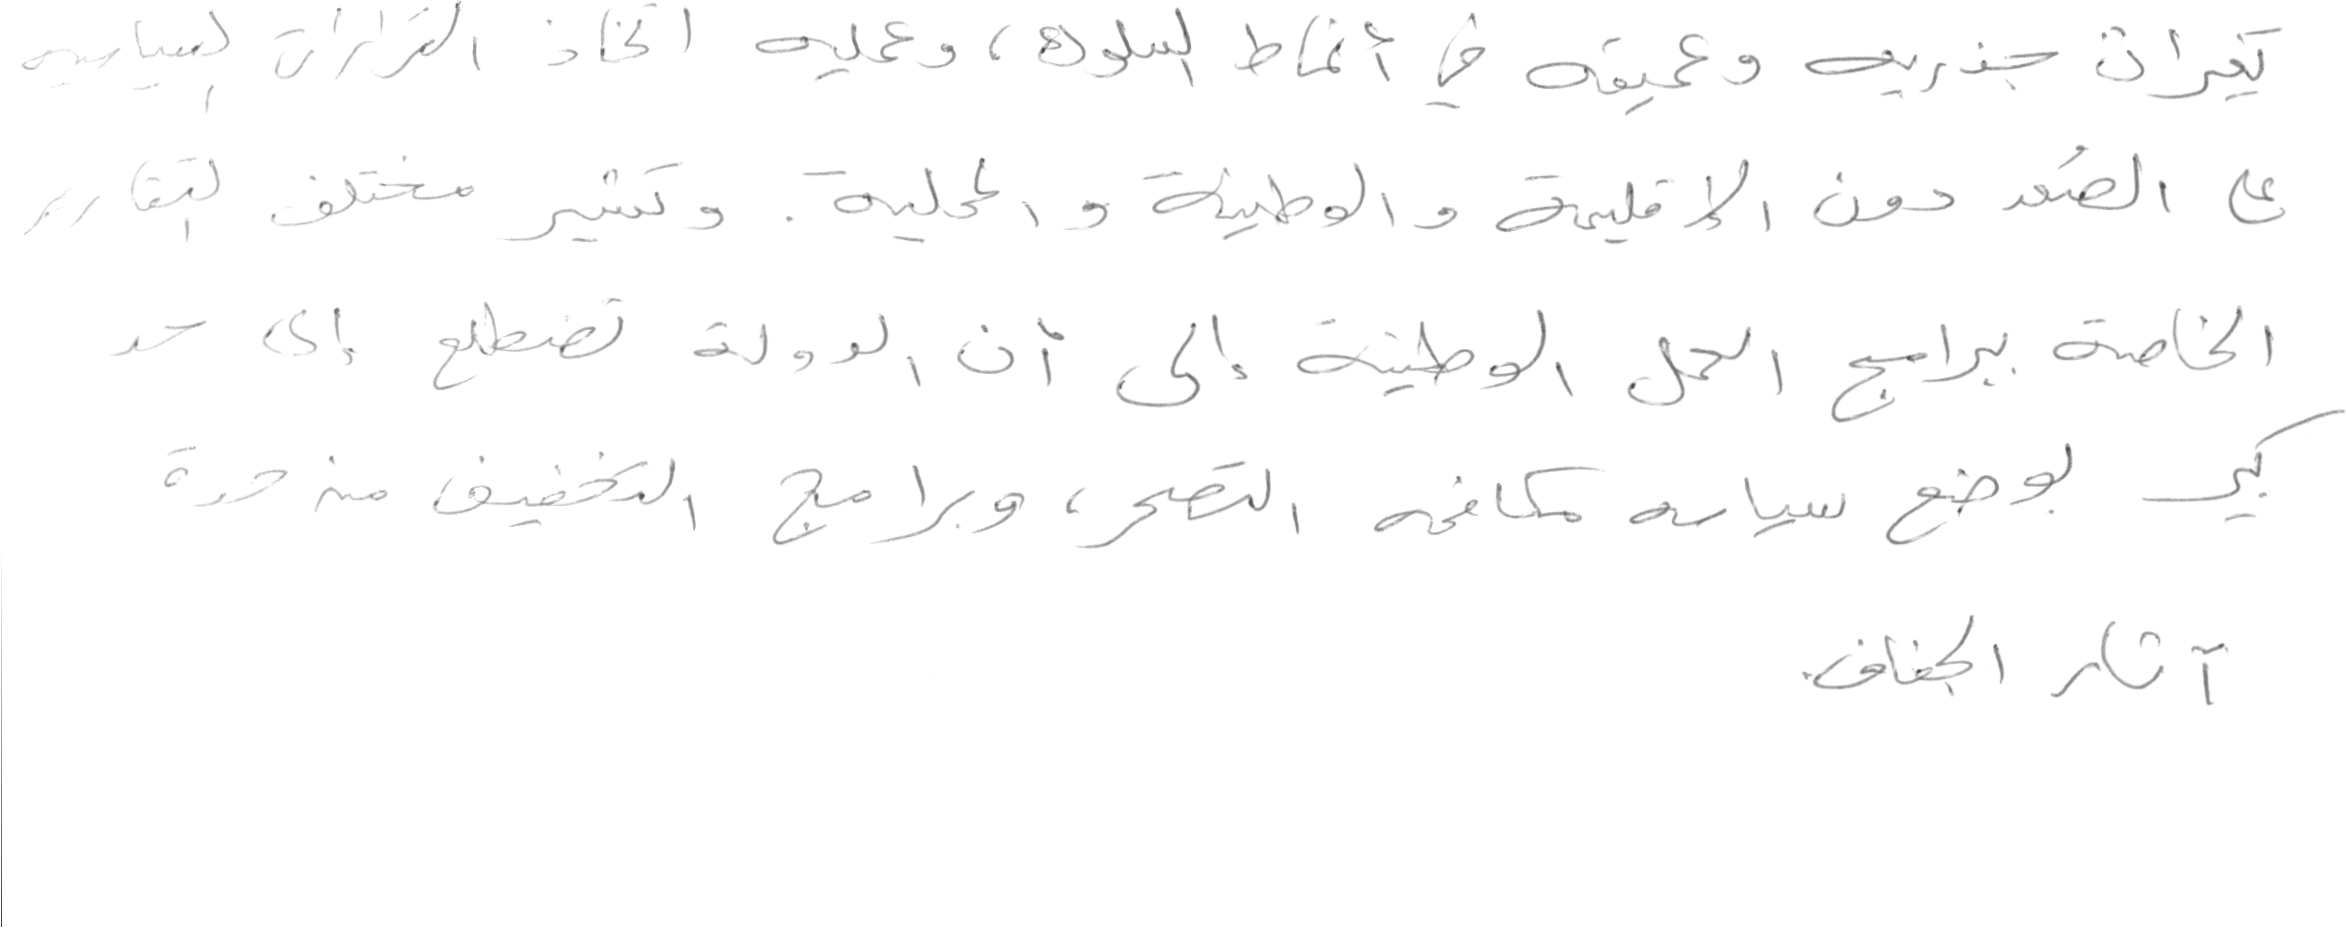 تغيرات جذريه وعميقه في أنماط السلوك، وعمليه اتخاذ القرارات السياسيه
على الصُعد دون الإقليمية والوطنية والمحلية. وتشير مختلف التقارير
الخاصة ببرامج العمل الوطنية إلى أن الدولة تضطلع إلى حد
كبير بوضع سياسه مكافحه التصحر، وبرامج التخفيف من حدة
آثار الجفاف.